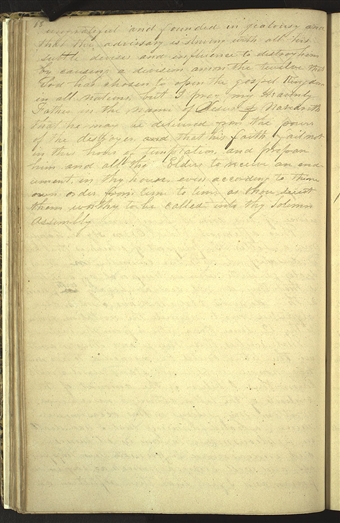 ungrateful and founded in jealousy and
that the adversary is striving with all his
subtle devises and influence to destroy him
by causing a division among the twelve that
God has chosen to open the Gospel Kingdom
in all nations but I pray my Heavenly
Father in the name of Jesus of Nazareth
that he may be delivered from the power
of the destroyer and that his faith fail not
in this hour of temptation and prepare
him and all the Elders to receive an end
ument, in thy house even according to thine
own order from time to time as thou seeest
them worthy to be called into thy Solemn
Assembly